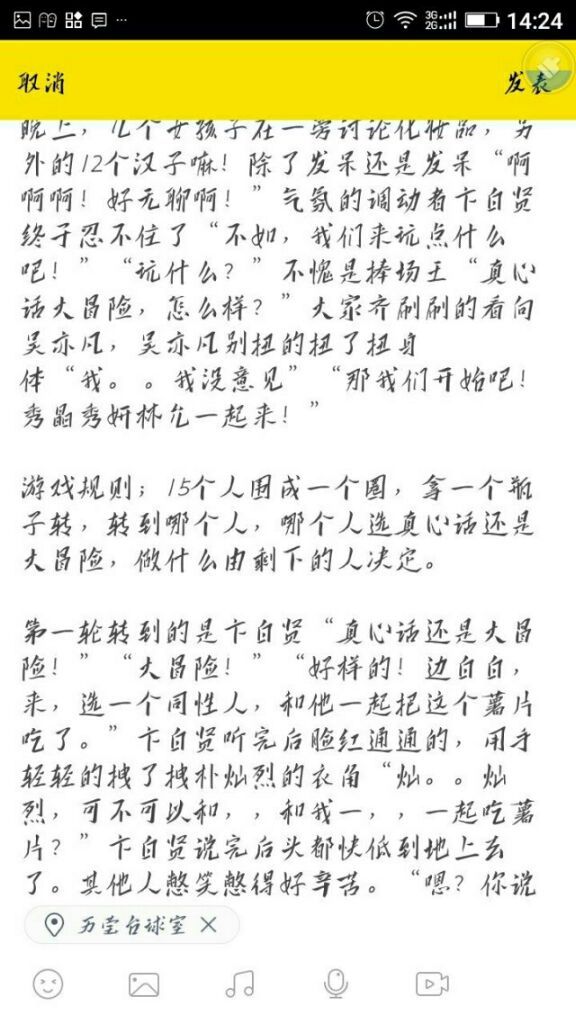 3G
2G
14:24
取消
发表
晚上，几个女孩子在一旁讨论化妆品，另
外的12个汉子嘛！除了发呆还是发呆“啊
啊啊！好无聊啊！”气氛的调动者卞白贤
终于忍不住了“不如，我们来玩点什么
吧！”“玩什么？”不愧是捧场王“真心
话大冒险，怎么样？”大家齐刷刷的看向
吴亦凡，吴亦凡别扭的扭了扭身
体“我。。我没意见”“那我们开始吧！
秀晶秀妍林允一起来！”
游戏规则；15个人围成一个圈，拿一个瓶
子转，转到哪个人，哪个人选真心话还是
大冒险，做什么由剩下的人决定。
第一轮转到的是卞白贤“真心话还是大冒
险！”“大冒险！”“好样的！边白白，
来，选一个同性人，和他一起把这个薯片
吃了。”卞白贤听完后脸红通通的，用手
轻轻的拽了拽朴灿烈的衣角“灿。。灿
烈，可不可以和，，和我一，，一起吃薯
片？”卞白贤说完后头都快低到地上去
了。其他人憋笑憋得好辛苦。“嗯？你说
万堂台球室